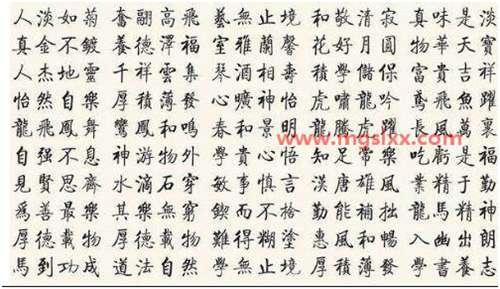 人淡如菊 奮翮高飛 藝無止境 和敬清寂 真味是淡
真金不鍍 養德澤福 室雅蘭馨 花好月圓 物華天寶
人杰地靈 千祥雲集 琴酒相壽 積學儲保 富貴吉祥
怡然自樂 厚積薄發 心曠神怡 虎嘯龍吟 鳶飛魚躍
龍飛鳳舞 鸞鳳和鳴 春和景明 龍騰虎躍 長風萬裏
www.mgslxx.com
自强不息 神游物外 學貴心悟 知足常樂 吃虧是福
見賢思齊 水滴石穿 敏事慎言 漢唐雄風 業精于勤
爲善最樂 其樂無窮 鍥而不捨 勤能補拙 龍馬精神
厚德載物 厚德載物 難得糊塗 惠風和暢 幽出朗
馬到功成 道法自然 學無止境 厚積薄發 學書養志